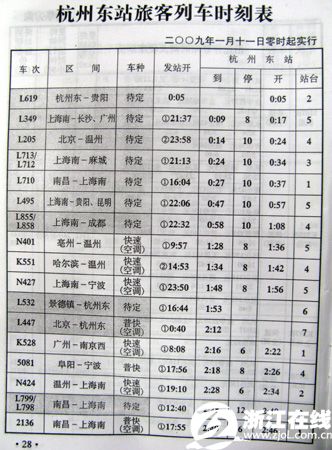 杭州东站旅客列车时刻表
二〇〇九年一月十一日零时起实行
车次 区间 车种 发站开 杭州东站
到 停 开 站台
L619 杭州东－贵阳 待定 0:05 0:05 2
L349 上海南－长沙、广州 待定 ①21:37 0:09 8 0:17 5
L205 北京－温州 待定 ②23:58 0:14 10 0:24 4
L713/L712 上海南－麻城 待定 ①21:13 0:24 10 0:34 3
L710 南昌－上海南 待定 ①16:04 0:27 10 0:37 1
L495 上海南－贵阳、昆明 待定 ①22:06 0:47 10 0:57 5
L855/L858 上海南－成都 待定 ①22:32 0:58 10 1:08 4
N401 亳州－温州 快速(空调) ①9:57 1:28 8 1:36 5
K551 哈尔滨－温州 快速(空调) ②14:53 1:34 8 1:42 4
N427 上海南－宁波 快速(空调) ①23:34 1:50 6 1:56 5
L532 景德镇－杭州东 待定 ①16:44 1:53 6
L447 北京－杭州东 普快(空调) ①0:40 2:12 7
K528 广州－南京西 快速(空调) ①8:08 2:16 6 2:22 1
5081 阜阳－宁波 普快 ①17:56 2:18 8 2:26 4
N424 温州－上海南 快速(空调) ①19:10 2:28 6 2:34 2
L799/L798 南昌－上海南 待定 ①12:40
2136 南昌－上海南 普快(空调) ①17:55 2:46
·28·
浙江在线
www.zjol.com.cn